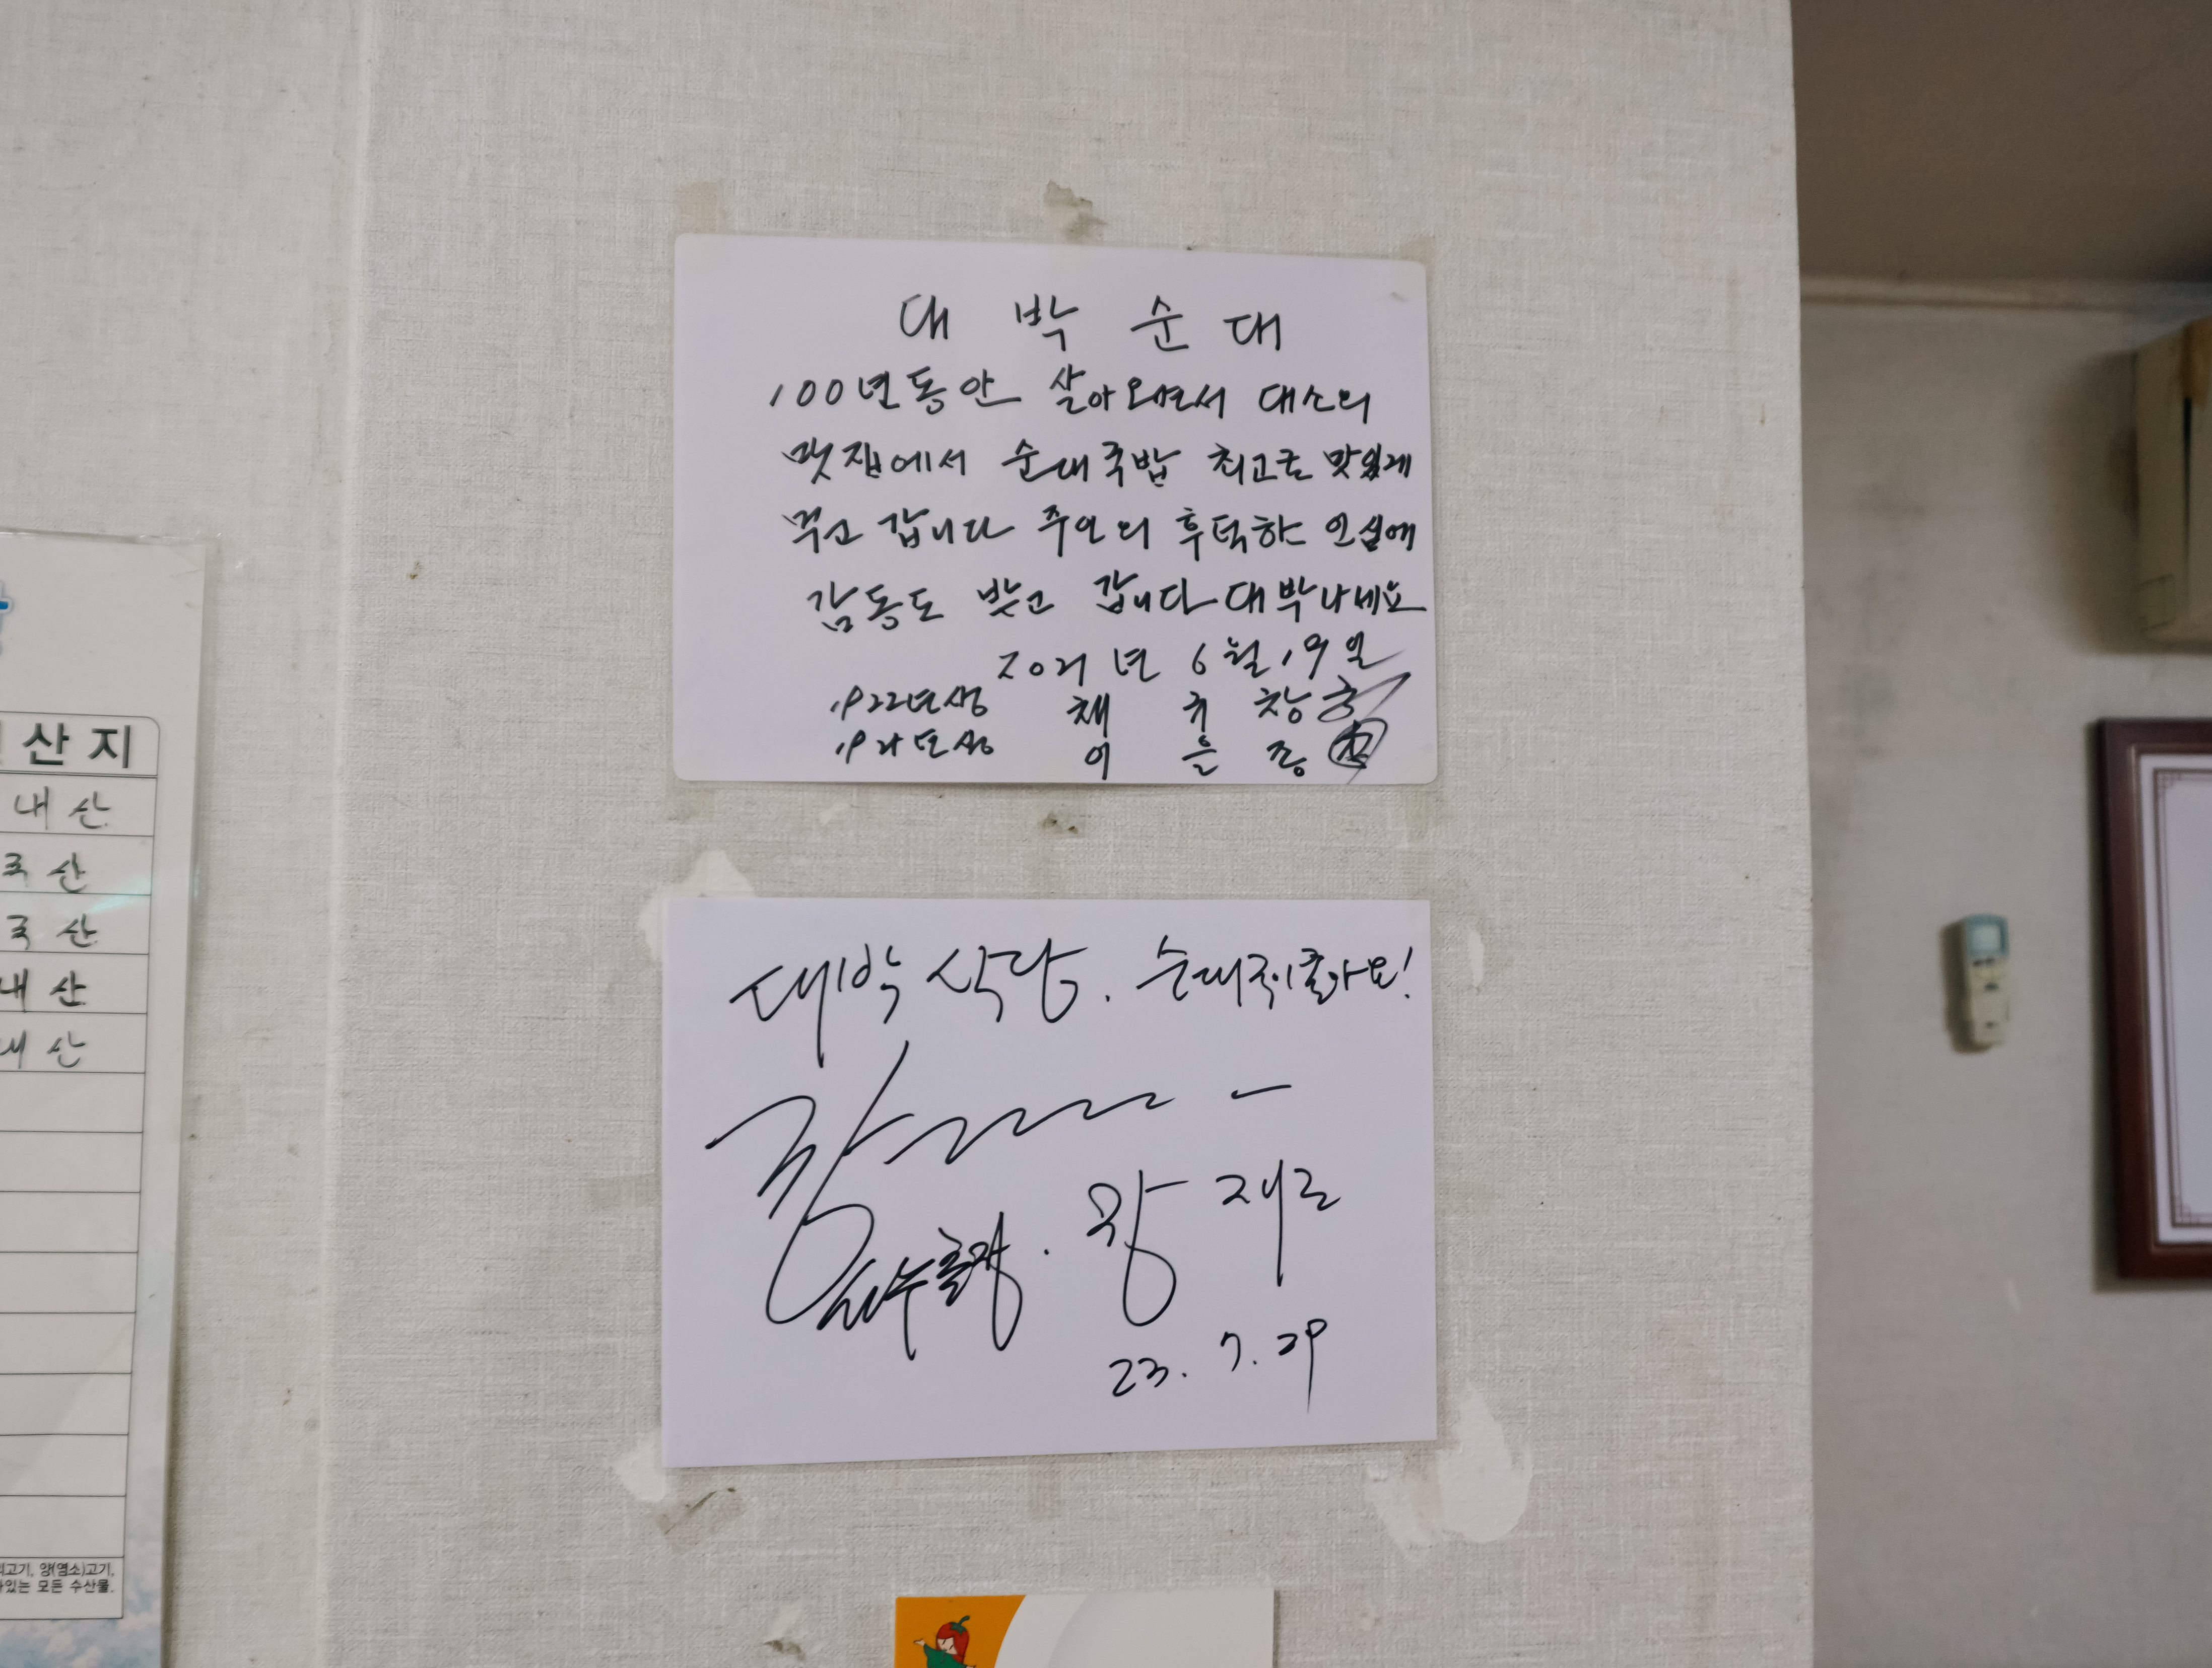 산지
내산
국산
국산
내산
내산
고기, 양(염소)고기,
있는 모든 수산물.
대박순대
100년동안 살아오면서 대소의
맛집에서 순대국밥 최고로 맛있게
먹고 갑니다 주인의 후덕한 인심에
감동도 받고 갑니다 대박나세요
2021년 6월 19일
1922년생 채규창
192년생 이을종
대박식당. 순대국이 좋아요!
왕재
23. 7. 29